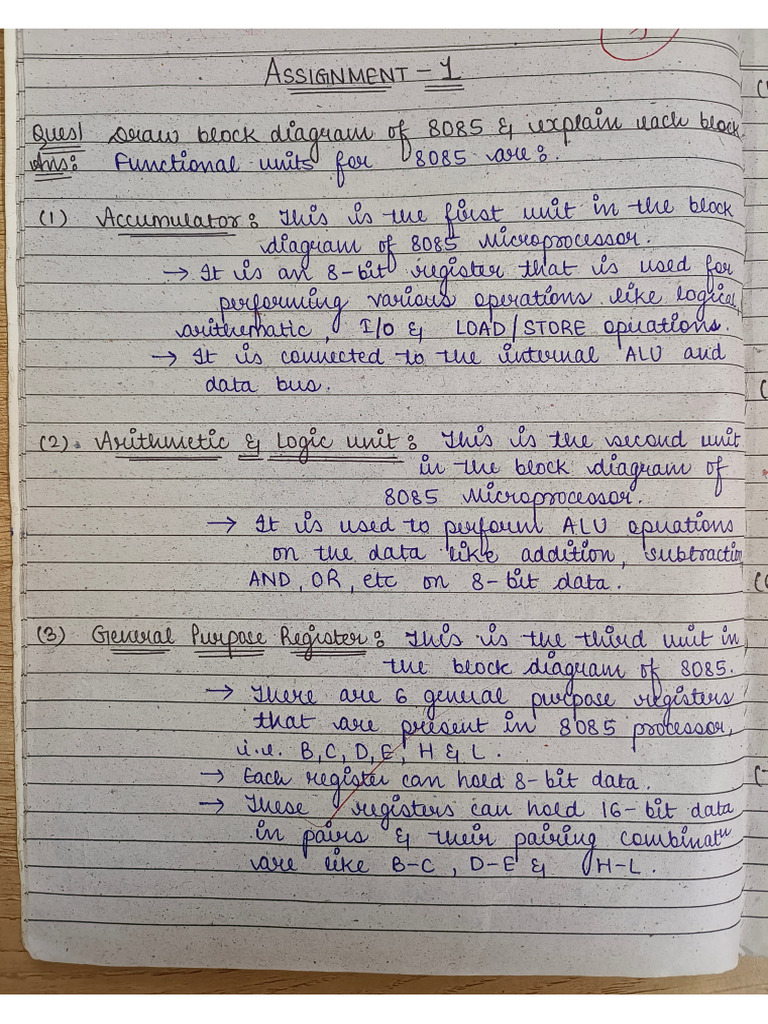 ASSIGNMENT - 1
Ques1 Draw block diagram of 8085 & explain each block.
Ans: Functional units for 8085 are:
(1) Accumulator: This is the first unit in the block
diagram of 8085 Microprocessor.
→ It is an 8-bit register that is used for
performing various operations like logical,
arithematic, I/O & LOAD/STORE operations.
→ It is connected to the internal ALU and
data bus.
(2) Arithmetic & Logic unit: This is the second unit
in the block diagram of
8085 Microprocessor.
→ It is used to perform ALU operations
on the data like addition, subtraction,
AND, OR, etc on 8-bit data.
(3) General Purpose Register: This is the third unit in
the block diagram of 8085.
→ There are 6 general purpose registers
that are present in 8085 processor,
i.e. B, C, D, E, H & L.
→ Each register can hold 8-bit data.
→ These registers can hold 16-bit data
in pairs & their pairing combinatn
are like B-C, D-E & H-L.